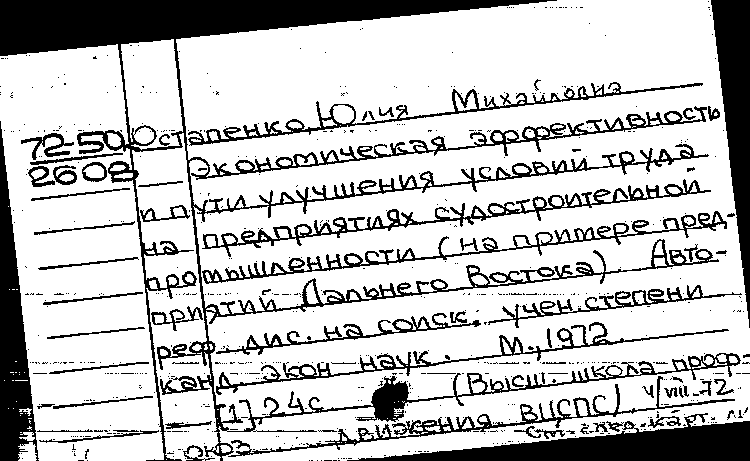 72-50
2608
Остапенко, Юлия Михайловна
Экономическая эффективность
и пути улучшения условий труда
на предприятиях судостроительной
промышленности (на примере пред-
приятий Дальнего Востока). Авто-
реф. дис. на соиск. учен. степени
канд. экон. наук. М., 1972.
[1], 24 с. (Высш. школа проф-
союз. движения ВЦСПС). V/VIII-72
См. след. карт.